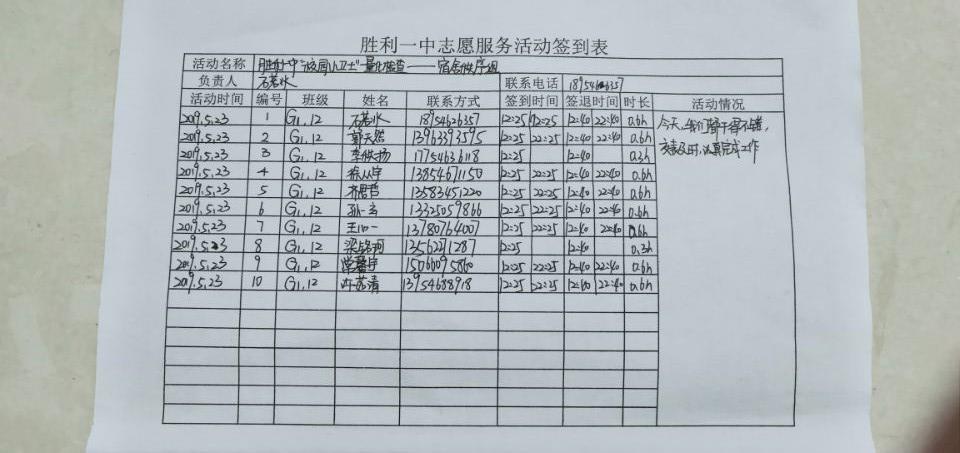 胜利一中志愿服务活动签到表
活动名称 胜利一中"校园小卫士"量化检查——宿舍秩序组
负责人 石若水 联系电话 18954626357
活动时间 编号 班级 姓名 联系方式 签到时间 签退时间 时长 活动情况
2019.5.23 1 G1.12 石若水 18954626357 12:25 22:25 12:40 22:40 0.6h 今天,我们都干得不错,
2019.5.23 2 G1.12 郭天然 13963393595 12:25 22:25 12:40 22:40 0.6h 交表及时,认真完成工作
2019.5.23 3 G1.12 李轶扬 17754636118 12:25 12:40 0.3h
2019.5.23 4 G1.12 徐从宇 13854671150 12:25 22:25 12:40 22:40 0.6h
2019.5.23 5 G1.12 齐思哲 13583451220 12:25 22:25 12:40 22:40 0.6h
2019.5.23 6 G1.12 孙一玄 13325059866 12:25 22:25 12:40 22:40 0.6h
2019.5.23 7 G1.12 王心一 13780764007 12:25 22:25 12:40 22:40 0.6h
2019.5.23 8 G1.12 梁铭珂 13562271287 12:25 12:40 0.3h
2019.5.23 9 G1.12 常馨宇 15066095860 12:25 22:25 12:40 22:40 0.6h
2019.5.23 10 G1.12 13954688918 12:25 22:25 12:40 22:40 0.6h